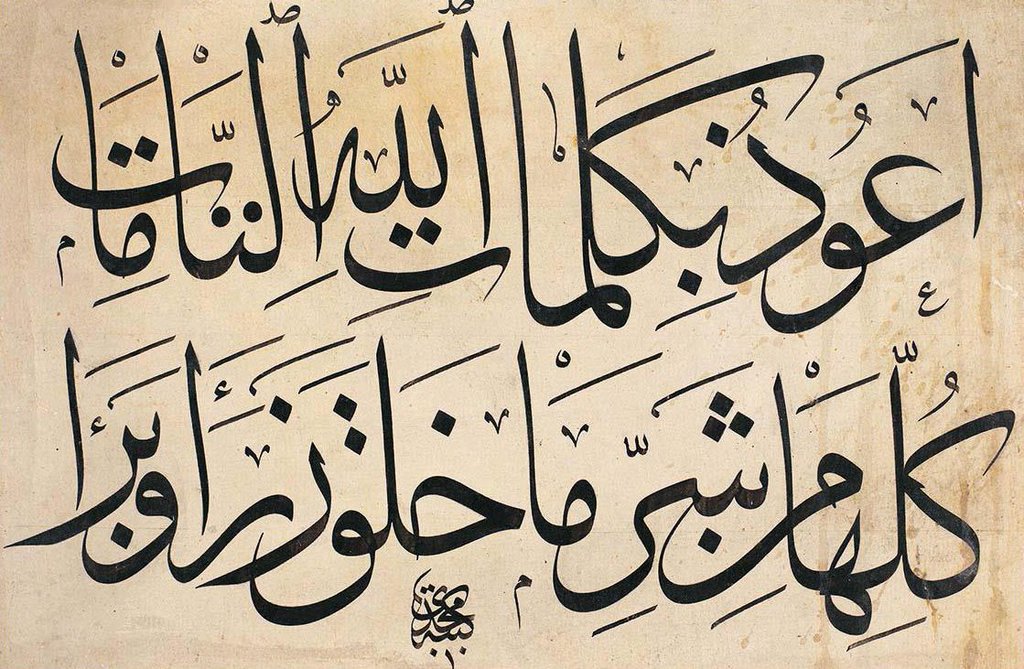 اَعُوذُ بِكَلِمَاتِ اللّٰهِ التَّامَّاتِ
كُلِّهَا مِنْ شَرِّ مَا خَلَقَ وَذَرَأَ وَبَرَأَ